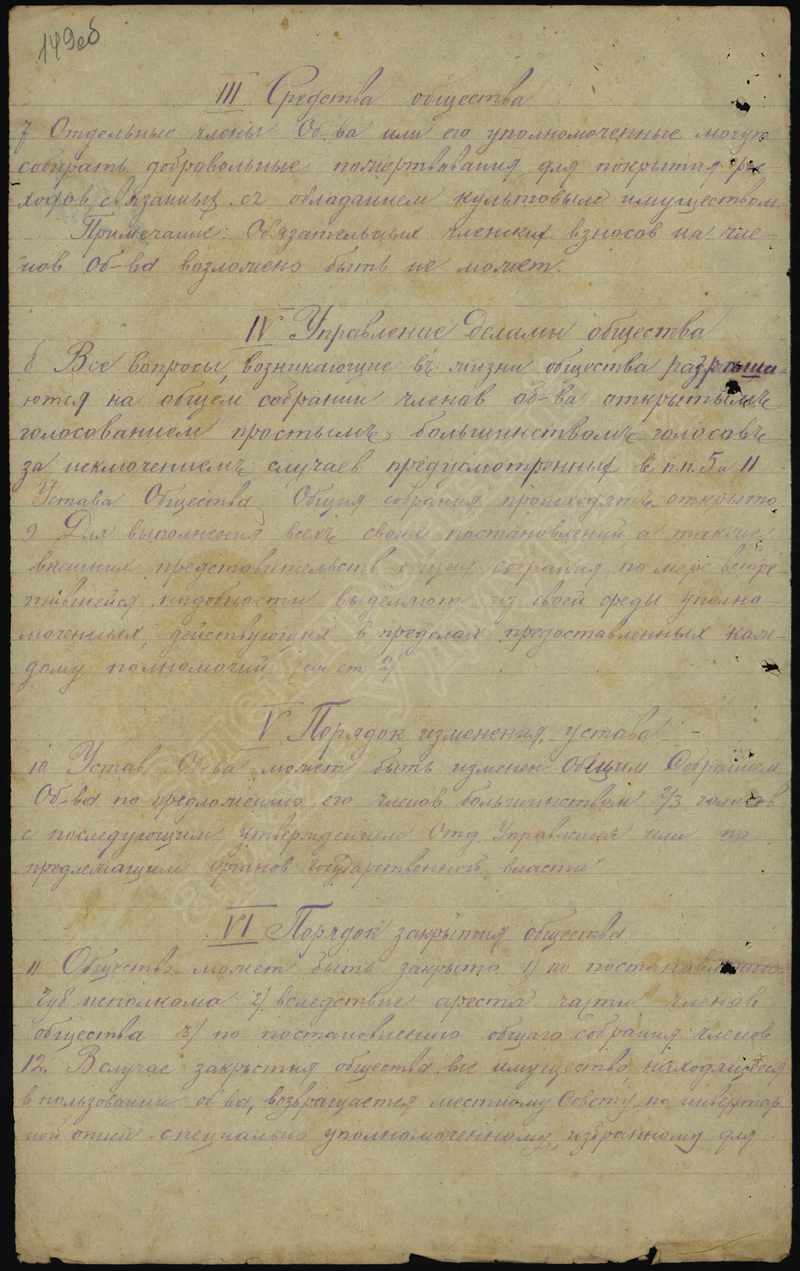 149об
III Средства общества
7 Отдельные члены Об-ва или его уполномоченные могут
собирать добровольные пожертвования для покрытия рас
ходов связанных съ обладанием культовым имуществом
Примечание: Обязательных членских взносов на чле-
нов Об-ва возложено быть не может.
IV Управление делами общества
8 Все вопросы, возникающие въ жизни общества разреша-
ются на общем собрании членав об-ва открытымъ
голосованием простымъ большинствомъ голосовъ
за исключениемъ случаев предусмотренных в п.п. 5 и 11
Устава Общества Общия собрания происходятъ открыто
9 Для выполнения всехъ своих постановлений а также
внешних представительств общия собрания по мере встре
тившейся надобности выделяют из своей среды уполно-
моченных, действующих в пределах предоставленных каж-
дому полномочий
V Порядок изменения устава
10 Устав Об-ва может быть изменен Общим Собранием
Об-ва по предложению его членов большинством 2/3 голосов
с последующим утверждением Отд. Управления или по
предлежащим органов государственной власти
VI Порядок закрытия общества
11 Общество может быть закрыто 1) по постановлению
Губисполкома 2) вследствие ареста части членав
общества 2/ по постановлению общаго собрания членов
12. В случае закрытия общества все имущество находящееся
в пользовании об-ва, возвращается местному Совету по инвентар
ной описи специально уполномоченному, избранному для